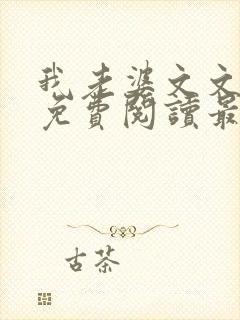 我老婆文文
免費閱讀最
古茶